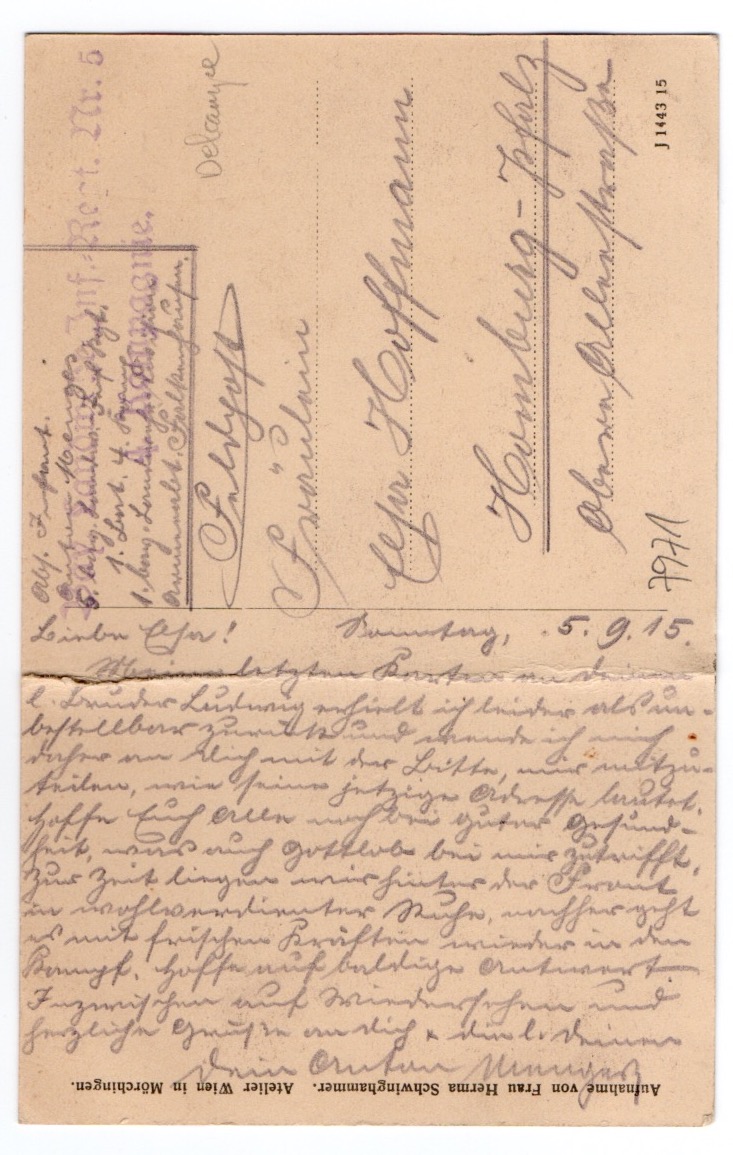 Abs. Infant.
Anton Menges
5. bayr. Landw. Inf. Rgt.
1. Batl. 4. Komp.
1. bayr. Landw.
Armeeabt. Falkenhausen.
Bay. Landw. Inf.-Regt. Nr. 5
4. Kompagnie.
Feldpost
Fräulein
Elsa Hoffmann
Homburg-Pfalz
Obere Alleestraße
J 1443 15
7971
Liebe Elsa! Sonntag, 5.9.15.
Meine letzten Karten an Deinen
l. Bruder Ludwig erhielt ich leider als un-
bestellbar zurück und wende ich mich
daher an Dich mit der Bitte, mir mitzu-
teilen, wie seine jetzige Adresse lautet.
Hoffe Euch Alle noch bei guter Gesund-
heit, was auch Gottlob bei mir zutrifft.
Zur Zeit liegen wir hinter der Front
in wohlverdienter Ruhe, nachher geht
es mit frischen Kräften wieder in den
Kampf. Hoffe auf baldige Antwort.
Inzwischen auf Wiedersehen und
herzliche Grüße an Dich & die l. Deinen
Dein Anton Menges
Aufnahme von Frau Herma Schwinghammer. Atelier Wien in Mörchingen.